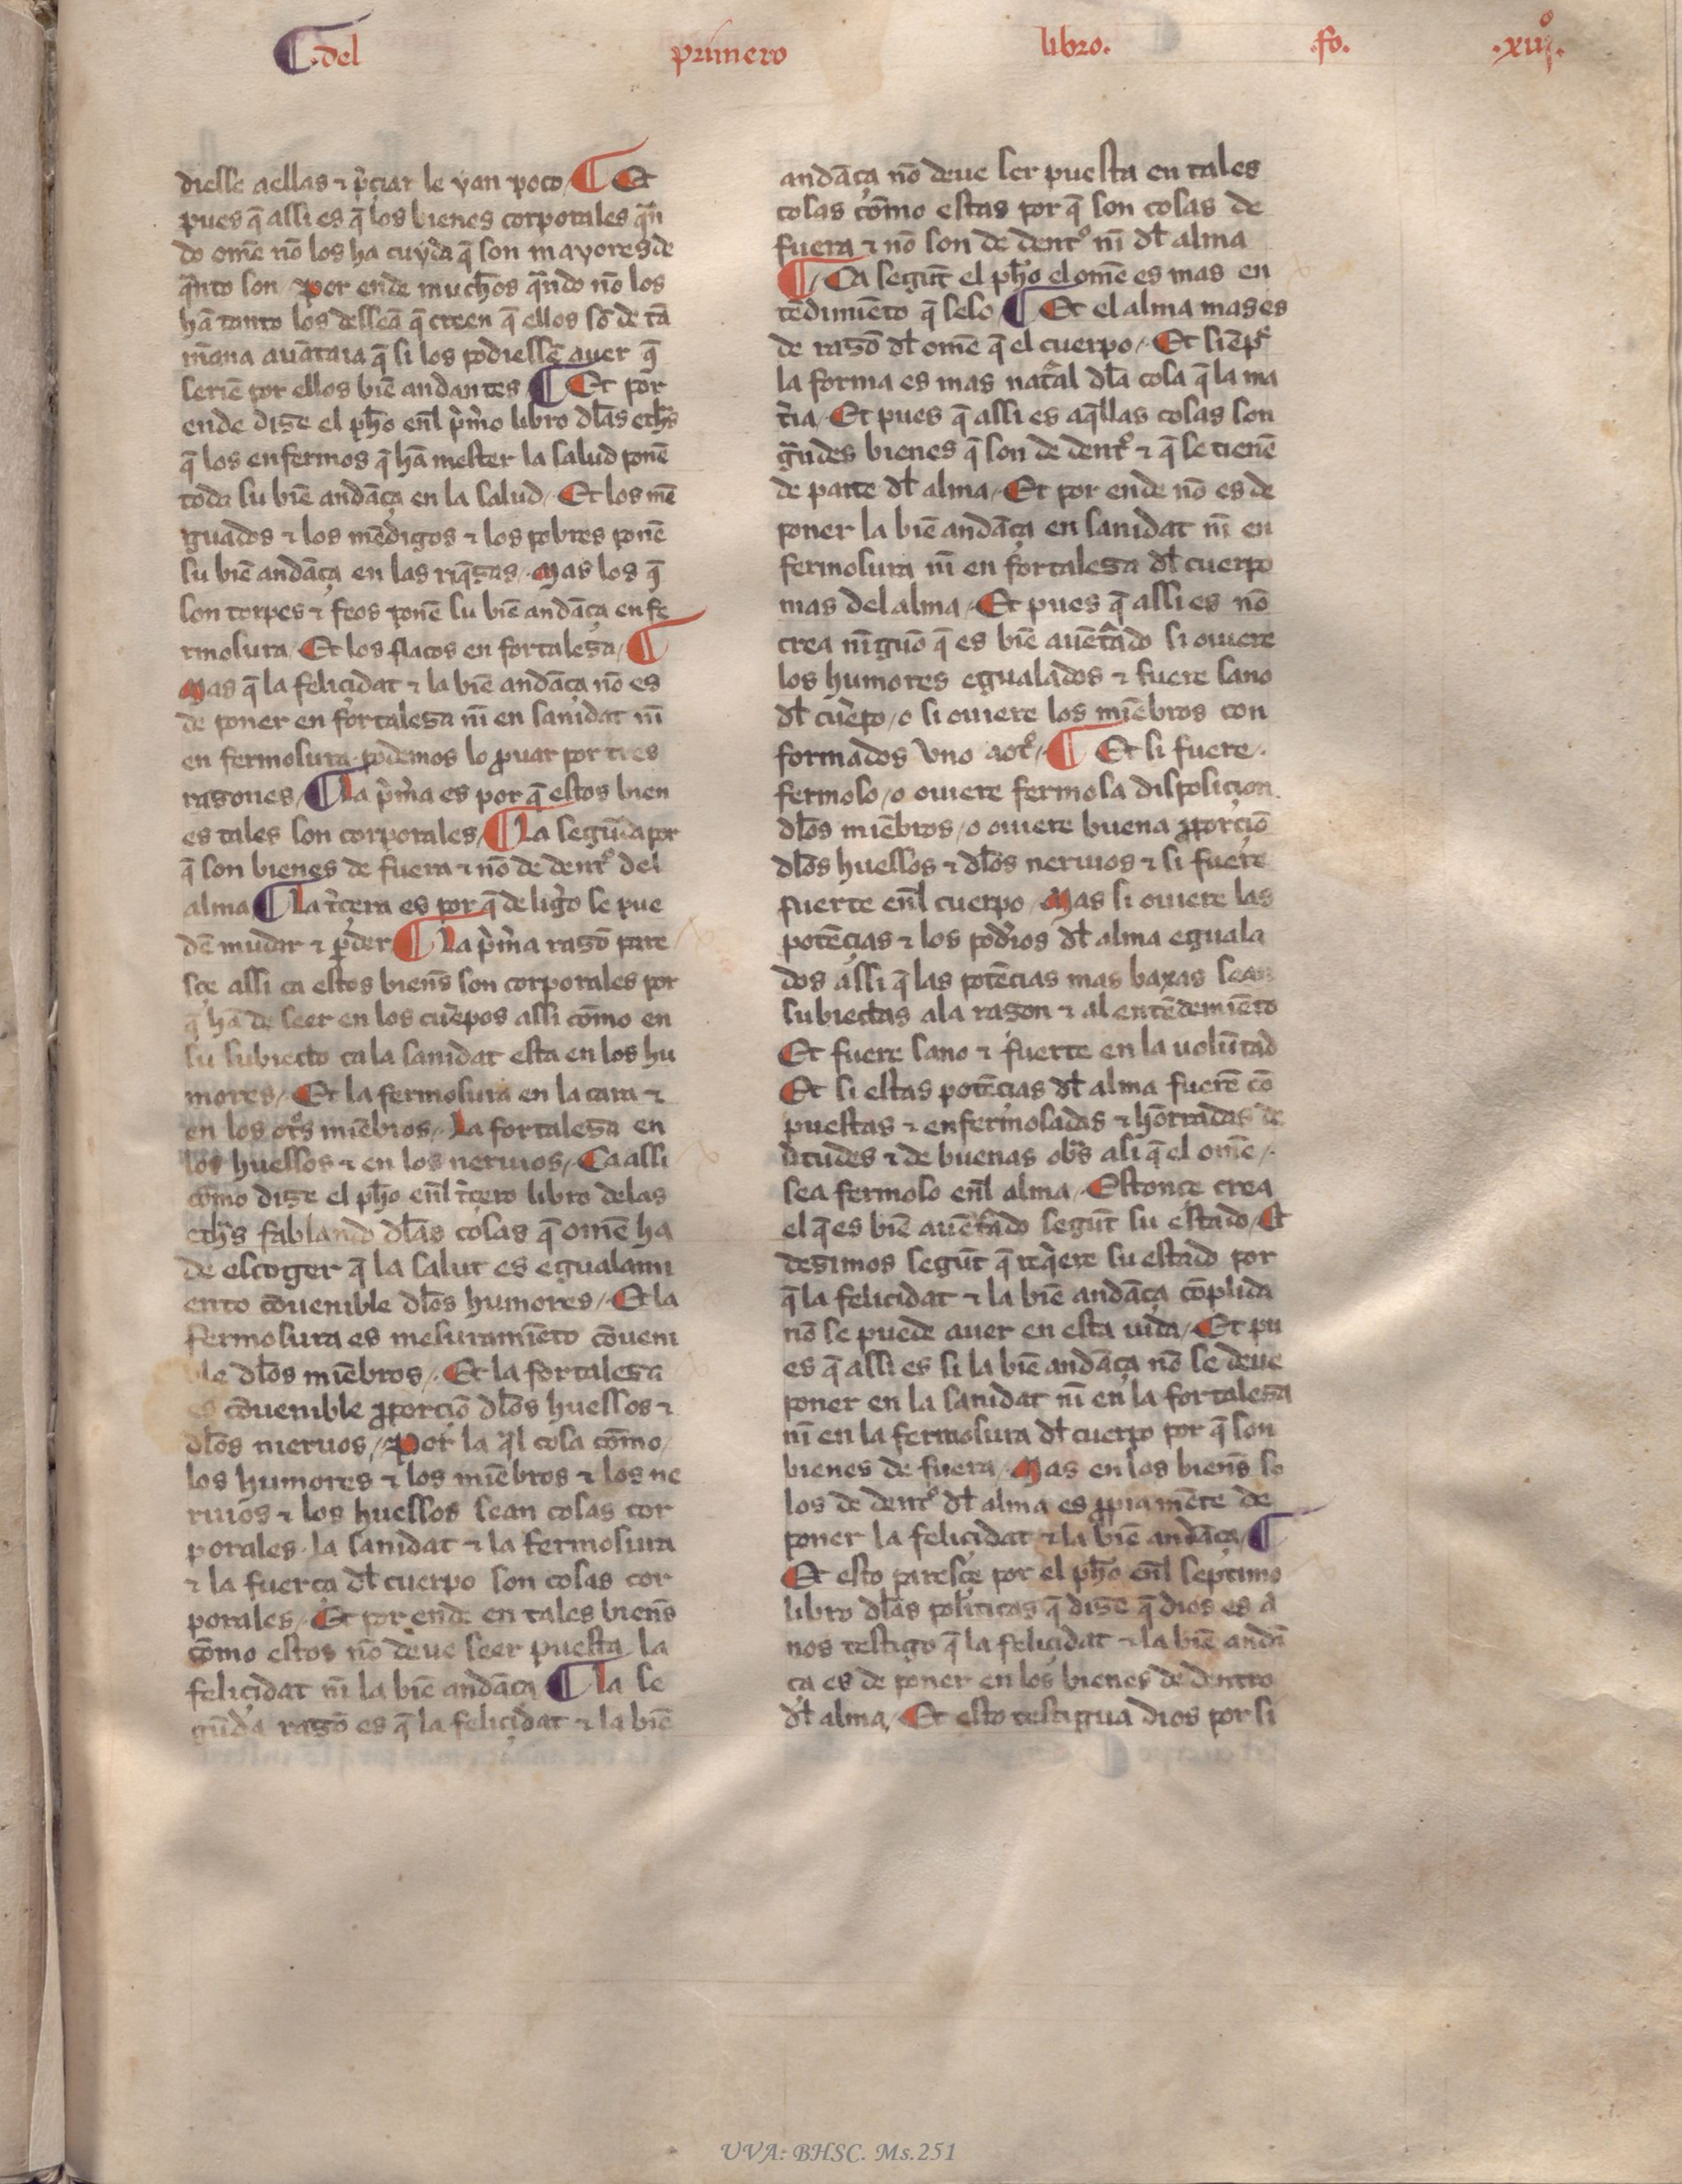 ¶ .del primero libro. .fo. .xiijº.
diesse aellas ⁊ p̃çiar le yan poco ¶ Et
pues q̃ assi es q̃ los bienes corporales q̃n
do ome̅ no̅ los ha cuyda q̃ son mayores de
q̃nto son / Por ende muchos q̃ndo no̅ los
ha̅ tanto los dessea̅ q̃ creen q̃ ellos so̅ de ta̅
man̅a aua̅taia q̃ si los podiesse̅ auer q̃
serie̅ por ellos bie̅ andantes ¶ Et por
ende dize el ph̅o en̅l p̃mo libro dl̅as eth̅s
q̃ los enfermos q̃ ha̅ mester la salud pone̅
toda su bie̅ anda̅ça en la salud / Et los me̅
guados ⁊ los me̅digos ⁊ los pobres pone̅
su bie̅ anda̅ça en las riq̃zas / Mas los q̃
son torpes ⁊ feos pone̅ su bie̅ anda̅ça en fe
rmosura / Et los flacos en fortaleza / ¶
Mas q̃ la feliçidat ⁊ la bie̅ anda̅ça no̅ es
de poner en fortaleza ni̅ en sanidat ni̅
en fermosura podemos lo ꝓuar por tres
razones / ¶ La p̃ma es por q̃ estos bien
es tales son corporales / ¶ La segu̅da por
q̃ son bienes de fuera ⁊ no̅ de dent̊ del
alma / ¶ La t̃çera es por q̃ de lig̃o se pue
de̅ mudar ⁊ p̱der ¶ La p̃ma razo̅ pare
sçe assi ca estos bien̅s son corporales por
q̃ ha̅ de seer en los cue̅rpos assi co̅mo en
su subiecto ca la sanidat esta en los hu
mores / Et la fermosura en la cara ⁊
en los ot̊s mie̅bros / La fortaleza en
los huessos ⁊ en los neruios / Ca assi
co̅mo dize el ph̅o en̅l t̃çero libro delas
eth̅s fablando dl̅as cosas q̃ ome̅ ha
de escoger q̃ la salut es egualami
ento co̅uenible dl̅os humores / Et la
fermosura es mesuramie̅to co̅ueni
ble dl̅os mie̅bros / Et la fortaleza
es co̅uenible ꝓporçio̅ dl̅os huessos ⁊
dl̅os nieruos / Por la q̃l cosa co̅mo /
los humores ⁊ los mie̅bros ⁊ los ne
ruios ⁊ los huessos sean cosas cor
porales la sanidat ⁊ la fermosura
⁊ la fuerça dl̅ cuerpo son cosas cor
porales / Et por ende en tales bien̅s
co̅mo estos no̅ deue seer puesta la
feliçidat ni̅ la bie̅ anda̅ça ¶ La se
gu̅da razo̅ es q̃ la feliçidat ⁊ la bie̅
anda̅ça no̅ deue ser puesta en tales
cosas co̅mo estas por q̃ son cosas de
fuera ⁊ no̅ son de dent̊ ni̅ dl̅ alma
¶ / Ca segu̅t el ph̅o el ome̅ es mas en
te̅dimie̅to q̃ seso / ¶ Et el alma mas es
de razo̅ dl̅ ome̅ q̃ el cuerpo / Et sie̅pr̃
la forma es mas nat̃al dl̅a cosa q̃ la ma
t̃ia / Et pues q̃ assi es aq̃llas cosas son
g̃ndes bienes q̃ son de dent̊ ⁊ q̃ se tiene̅
de parte dl̅ alma / Et por ende no̅ es de
poner la bie̅ anda̅ça en sanidat ni̅ en
fermosura ni̅ en fortaleza dl̅ cuerpo
mas del alma / Et pues q̃ assi es no̅
crea ni̅guo̅ q̃ es bie̅ aue̅t̃ado si ouiere
los humores egualados ⁊ fuere sano
dl̅ cue̅rpo / o si ouiere los mie̅bros con
formados vno aot̊ / ¶ Et si fuere.
fermoso / o ouiere fermosa disposiçion
dl̅os mie̅bros / o ouiere buena ꝓporçio̅
dl̅os huessos ⁊ dl̅os neruios ⁊ si fuere
fuerte en̅l cuerpo / Mas si ouiere las
pote̅çias ⁊ los pod̃ios dl̅ alma eguala
dos assi q̃ las pote̅cias mas baxas sean
subiectas ala razon ⁊ al ente̅demie̅to
Et fuere sano ⁊ fuerte en la uolu̅tad
Et si estas pote̅cias dl̅ alma fuere̅ co̅
puestas ⁊ enfermosadas ⁊ ho̅rradas de
ṽtudes ⁊ de buenas ob̃s asi q̃ el ome̅ /
sea fermoso en̅l alma / Estonçe crea
el q̃ es bie̅ aue̅t̃ado segu̅t su estado / Et
dezimos segu̅t q̃ req̃ere su estado por
q̃ la felicidat ⁊ la bie̅ anda̅ça co̅plida
no̅ se puede auer en esta uida / Et pu
es q̃ assi es si la bie̅ anda̅ça no̅ se deue
poner en la sanidat ni̅ en la fortaleza
ni̅ en la fermosura dl̅ cuerpo por q̃ son
bienes de fuera / Mas en los bien̅s so
los de dent̊ dl̅ alma es ꝓpiame̅te de
poner la feliçidat ⁊ la bie̅ anda̅ça / ¶
Et esto paresçe por el ph̅o en̅l septimo
libro dl̅as politicas q̃ dize q̃ dios es a
nos testigo q̃ la feliçidat ⁊ la bie̅ anda̅
ça es de poner en los bienes de dentro
dl̅ alma / Et esto testigua dios por si
UVA: BHSC. Ms.251